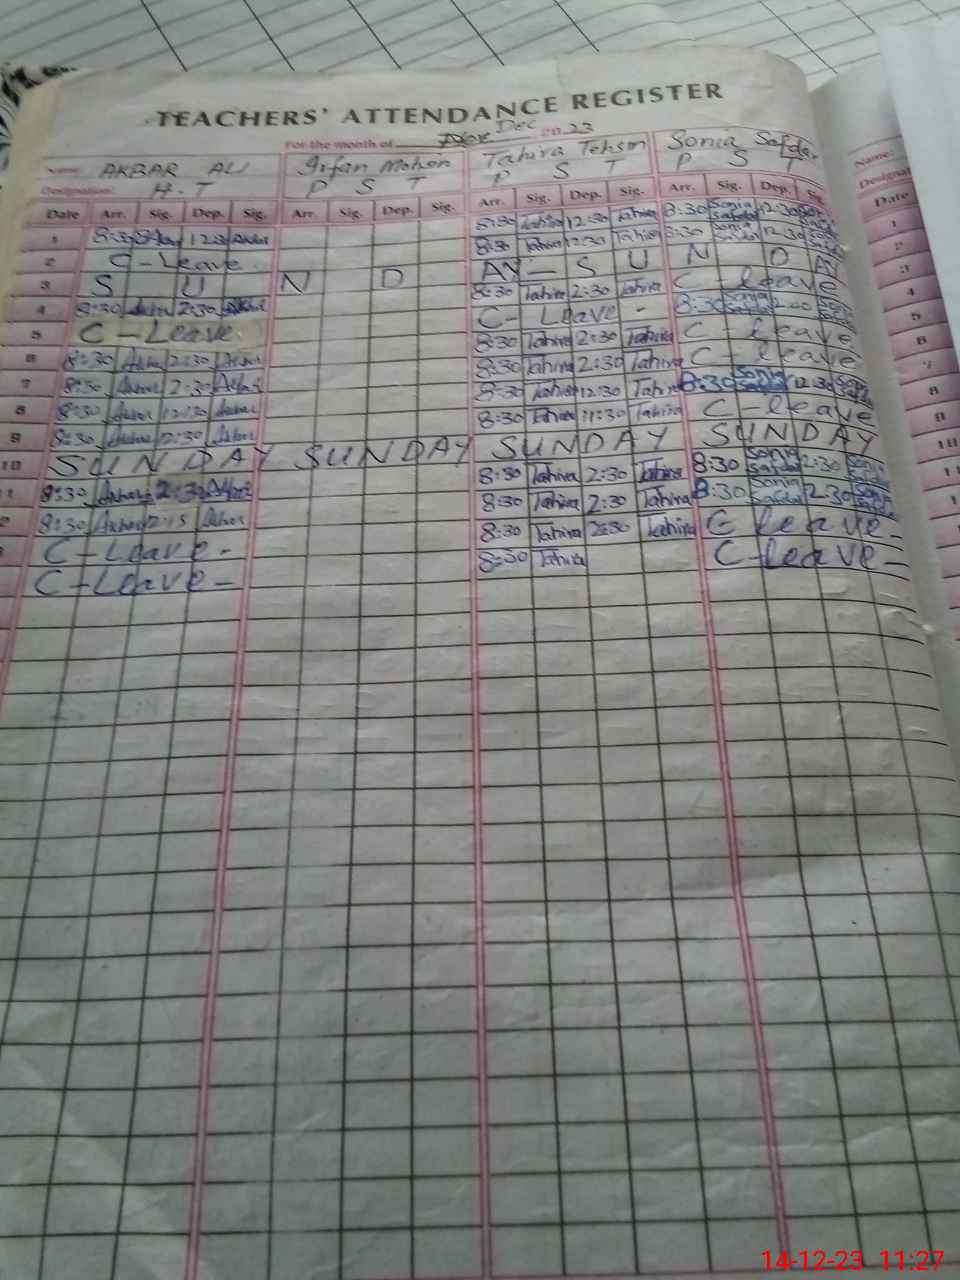 TEACHERS' ATTENDANCE REGISTER
For the month of Dec 2023
Name: AKBAR ALI Irfan Mohsn Tahira Tehsn Sonia Safdar Name:
Designation: H.T P S T P S T P S T
Date Arr. Sig. Dep. Sig. Arr. Sig. Dep. Sig. Arr. Sig. Dep. Sig. Arr. Sig. Dep. Sig. Date
1 8:30 12:30 Akbar 8:30 Tahira 12:30 Tahira 8:30 Sonia Safdar 12:30 1
2 C-Leave 8:30 Tahira 12:30 Tahira 8:30 Sonia Safdar 12:30 2
3 S U N D AY - S U N D AY 3
4 8:30 Akbar 2:30 Akbar 8:30 Tahira 2:30 Tahira C leave 4
5 C-Leave. C- Leave - 8:30 Sonia Safdar 2:00 5
6 8:30 Akbar 2:30 Akbar 8:30 Tahira 2:30 Tahira C leave 6
7 8:30 Akbar 2:30 Akbar 8:30 Tahira 2:30 Tahira C - leave 7
8 8:30 Akbar 12:30 Akbar 8:30 Tahira 12:30 Tahira 8:30 Sonia Safdar 12:30 8
9 8:30 Akbar 2:30 Akbar 8:30 Tahira 11:30 Tahira C-leave 9
10 SUNDAY SUNDAY SUNDAY SUNDAY 10
11 8:30 Akbar 2:30 Akbar 8:30 Tahira 2:30 Tahira 8:30 Sonia Safdar 2:30 Sonia
8:30 Akbar 2:15 Akbar 8:30 Tahira 2:30 Tahira 8:30 Sonia Safdar 2:30
C-Leave- 8:30 Tahira 2:30 Tahira C leave-
C-Leave- 8:30 Tahira C-leave-
14-12-23 11:27